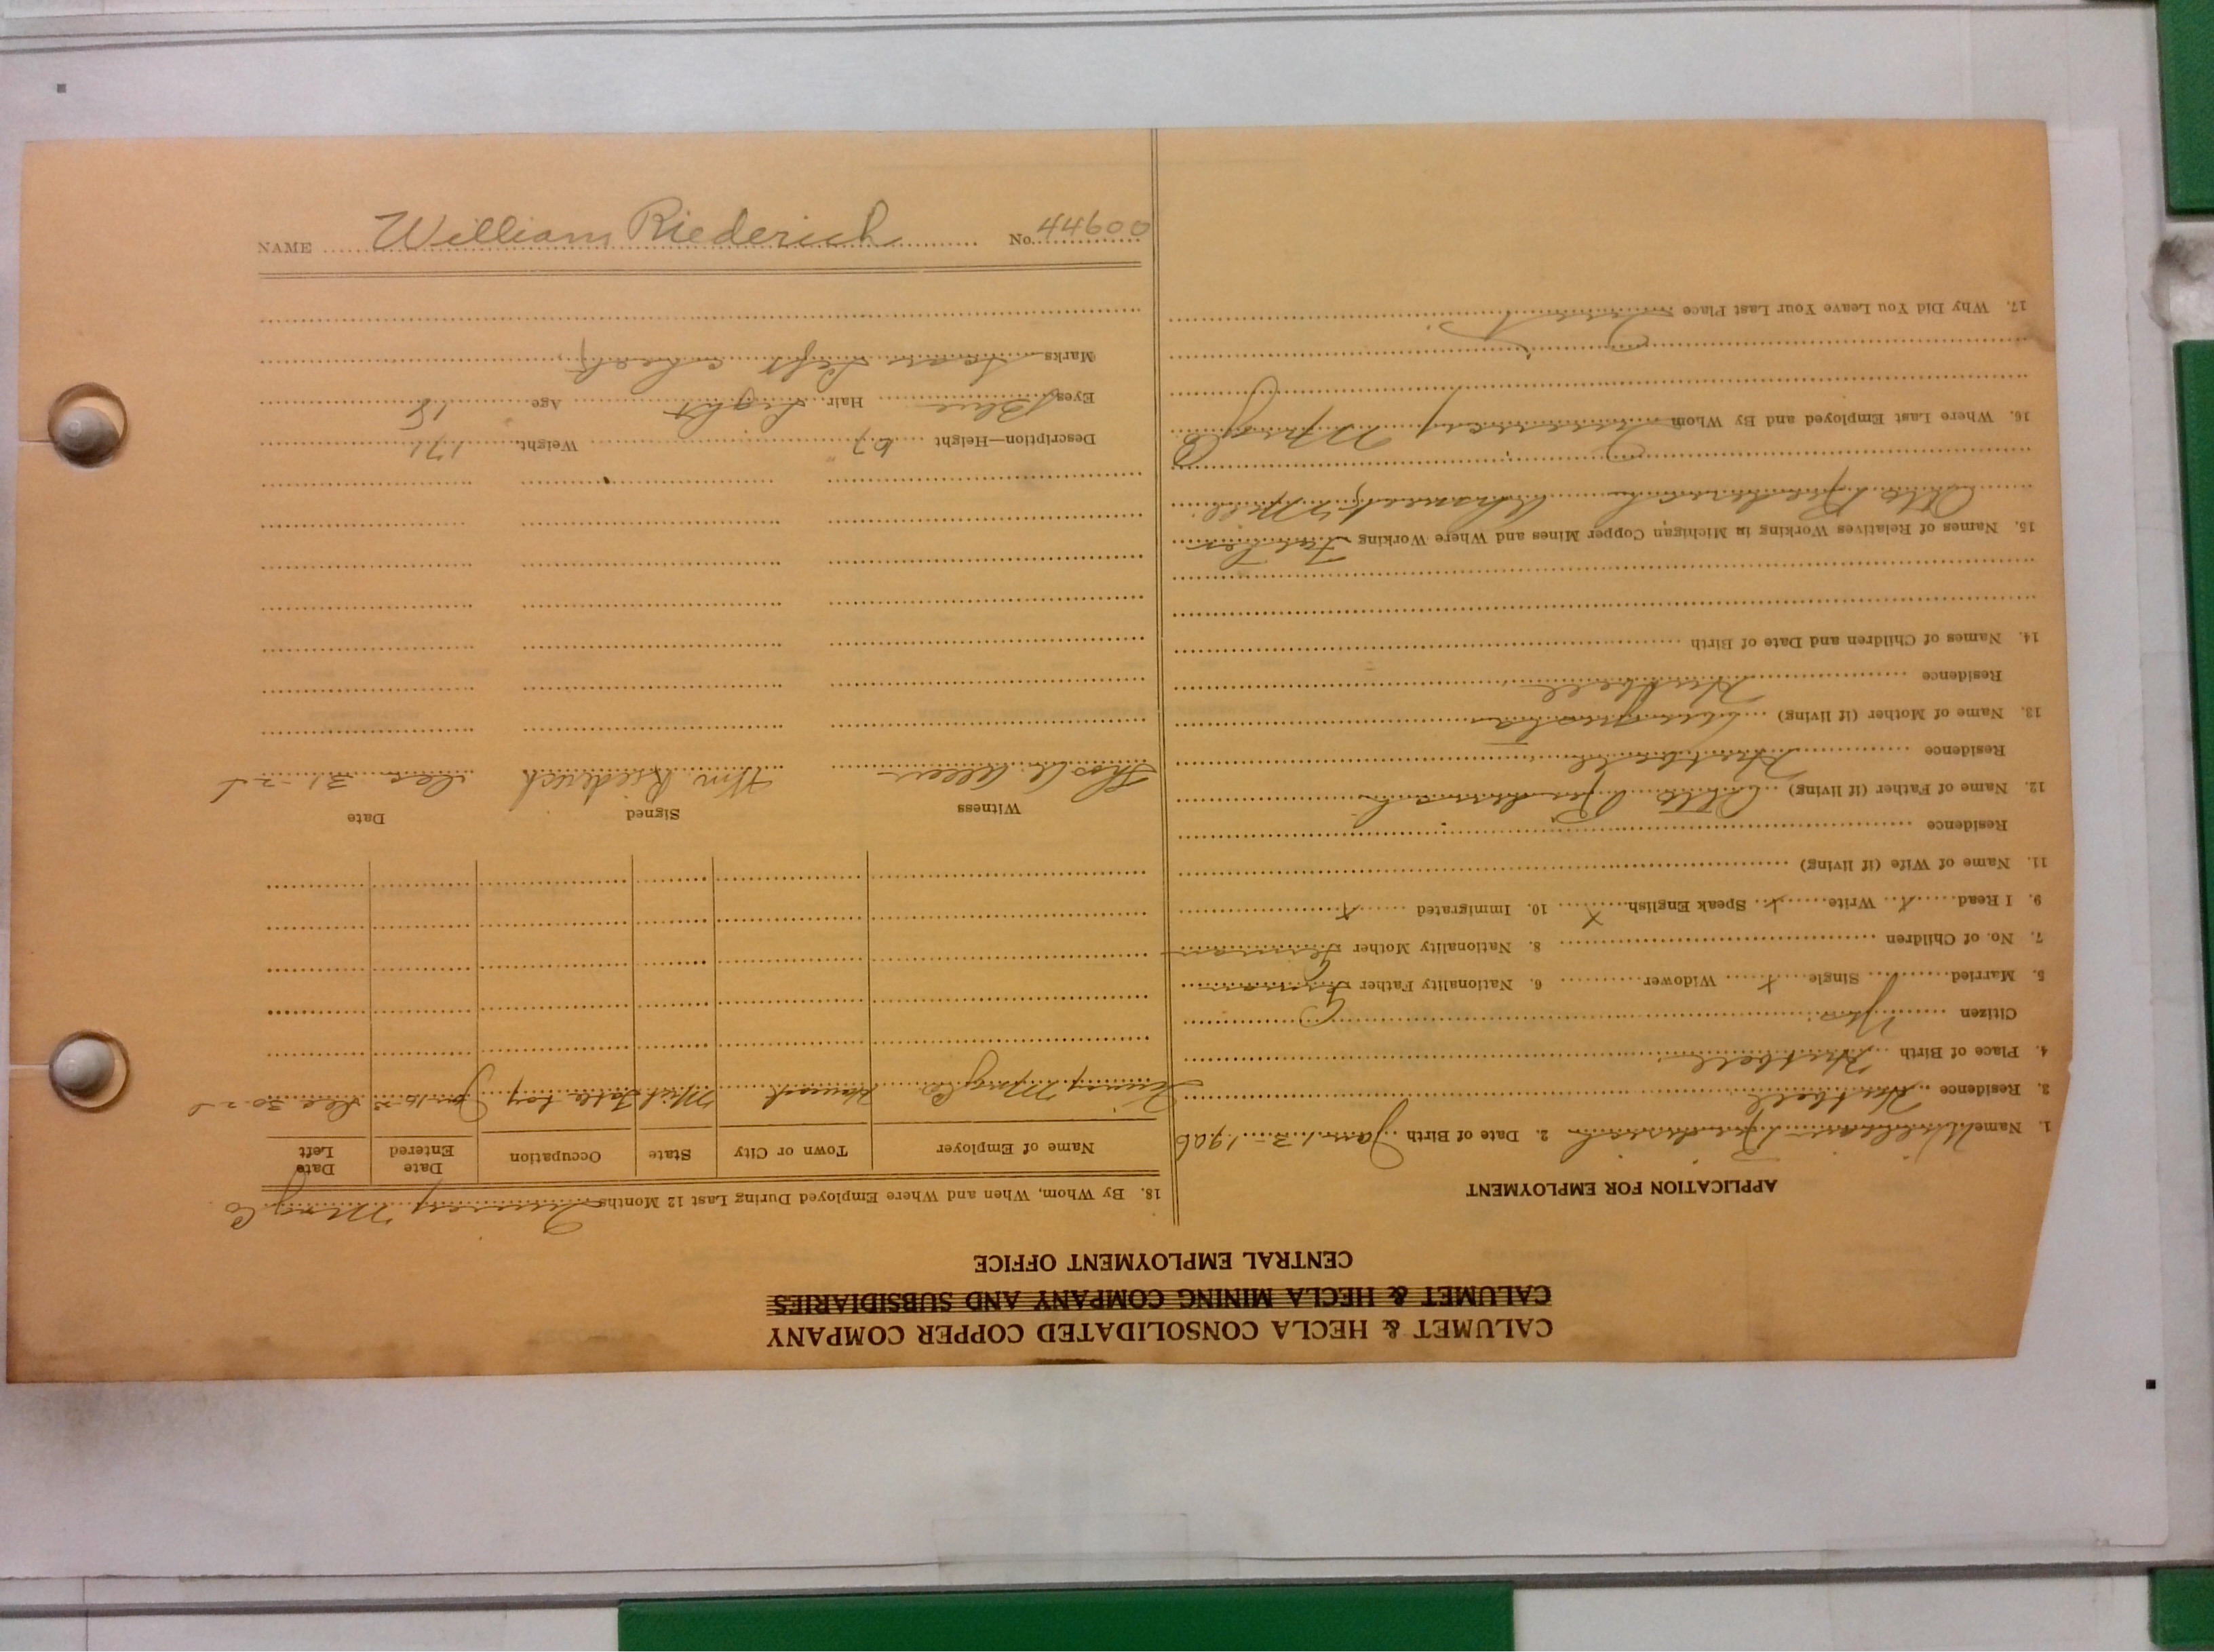 CALUMET & HECLA CONSOLIDATED COPPER COMPANY
CALUMET & HECLA MINING COMPANY AND SUBSIDIARIES
CENTRAL EMPLOYMENT OFFICE
APPLICATION FOR EMPLOYMENT
1. Name William Riederich 2. Date of Birth Jan. 13 - 1906
3. Residence Hubbell
4. Place of Birth Hubbell
Citizen Yes
5. Married Single x Widower 6. Nationality Father German
7. No. of Children 8. Nationality Mother German
9. I Read x Write x Speak English x 10. Immigrated x
11. Name of Wife (if living)
Residence
12. Name of Father (if living) Otto Riederich
Residence Hubbell
13. Name of Mother (if living) Augusta
Residence Hubbell
14. Names of Children and Date of Birth
15. Names of Relatives Working in Michigan Copper Mines and Where Working Father
Otto Riederich Ahmeek Mill
16. Where Last Employed and By Whom Quincy Mng Co
17. Why Did You Leave Your Last Place Quit
18. By Whom, When and Where Employed During Last 12 Months Quincy Mng Co
Name of Employer Town or City State Occupation Date Entered Date Left
Quincy Mng Co Hancock Mich Table boy Jan 16 Dec 30
Witness Signed Date
Thos Allen Wm Riederich Dec 31
Description—Height 67" Weight 171
Eyes Blue Hair Light Age 18
Marks Scar Left cheek
NAME William Riederich No. 44600